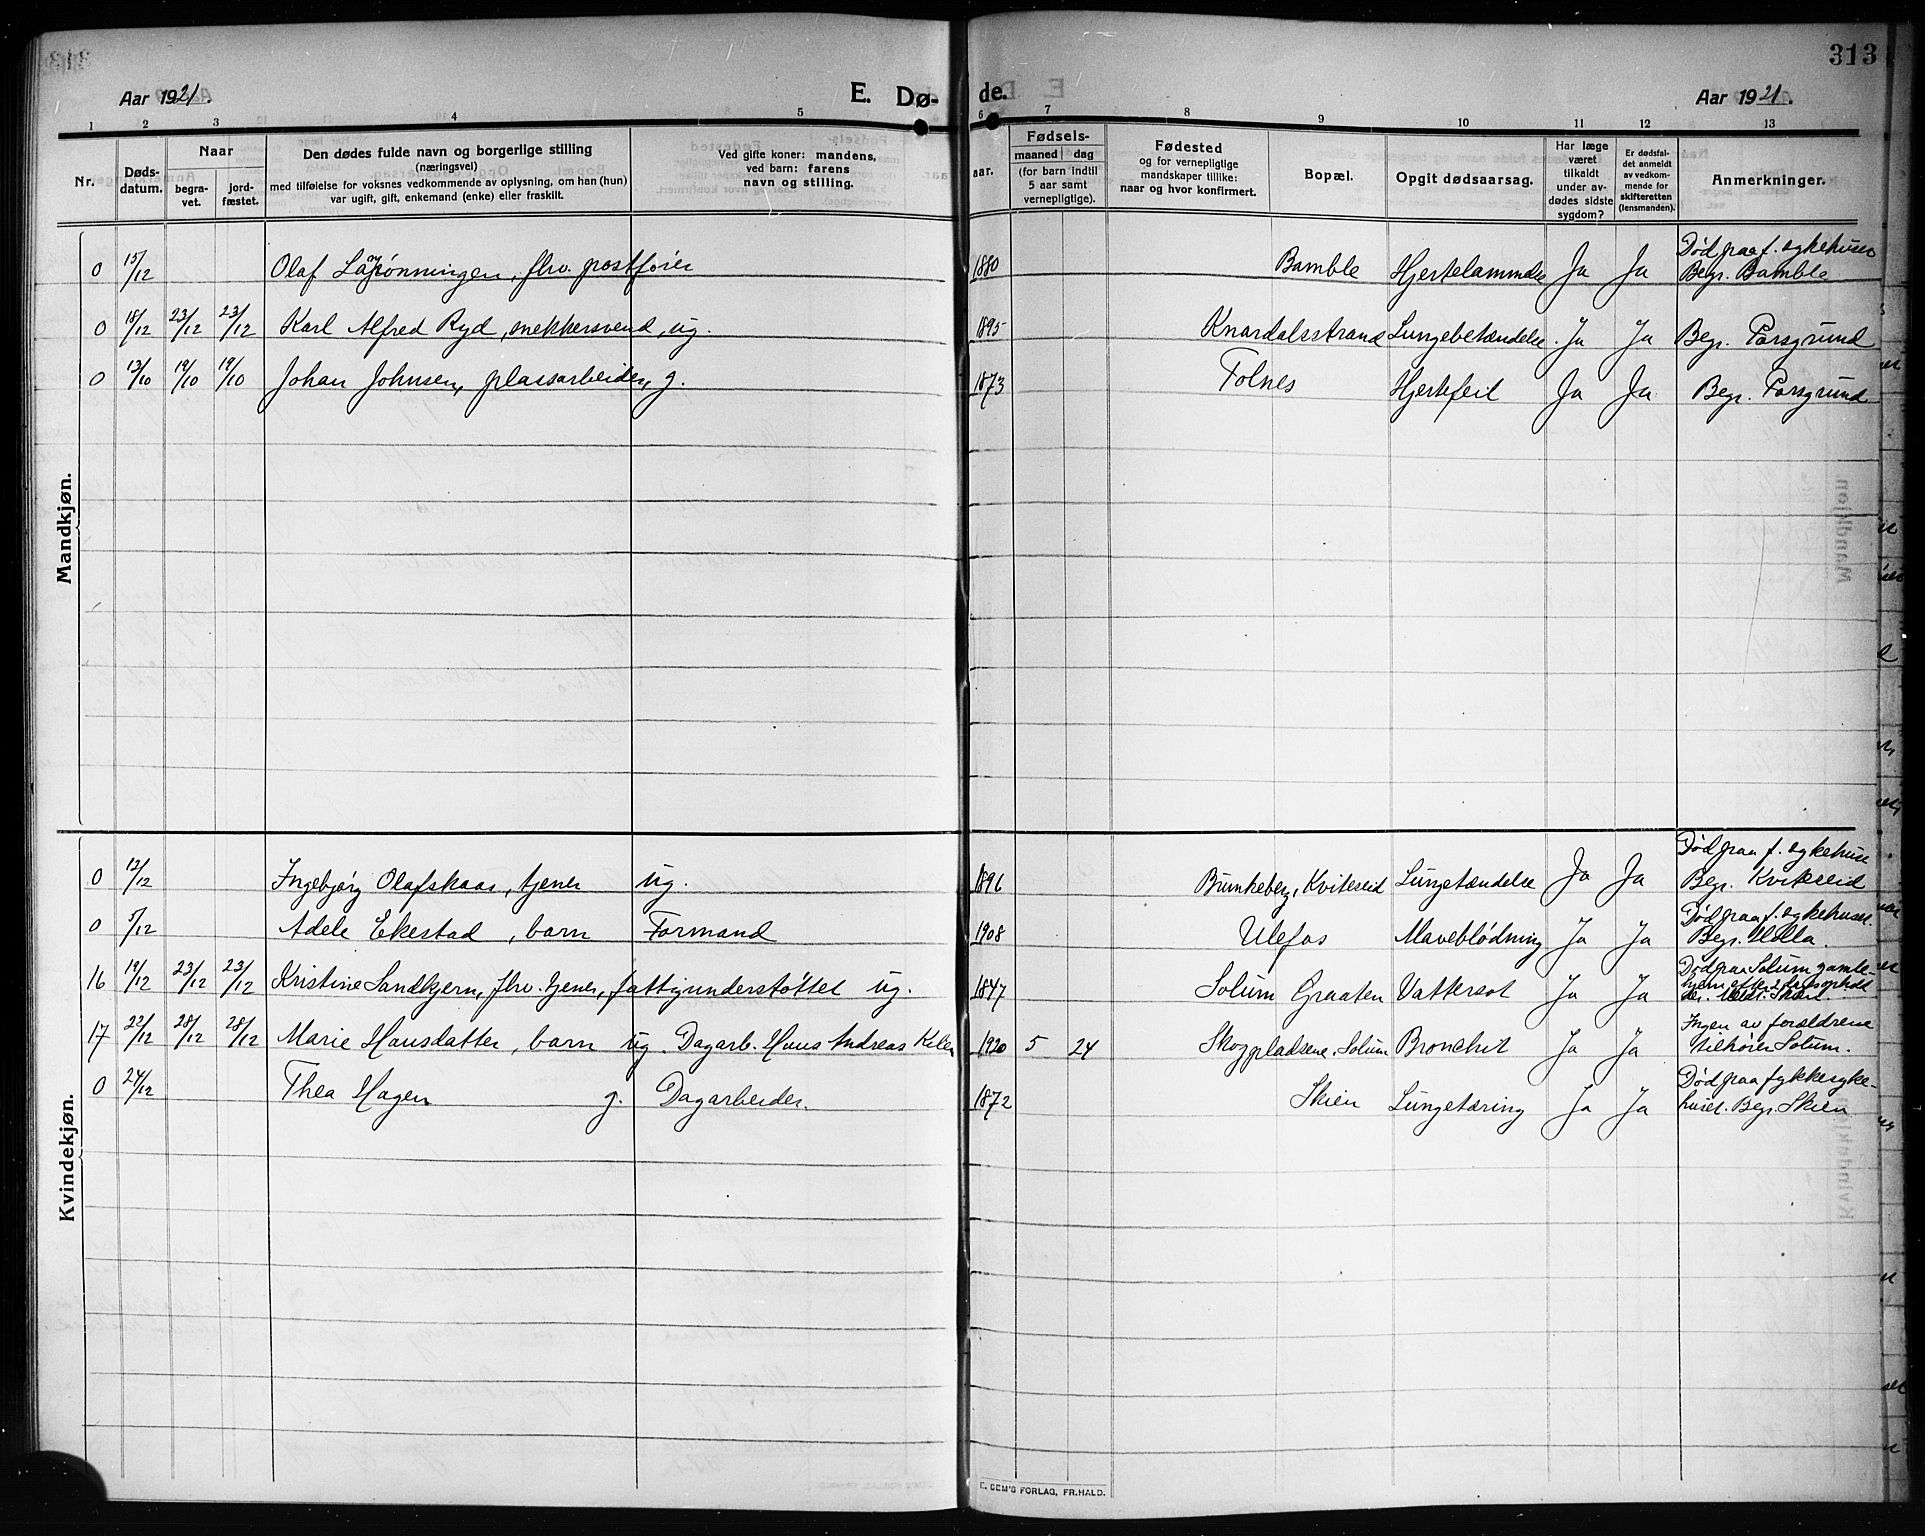 313
Aar 1921.
E. Dø-
de.
Aar 1921.
1 2 3 4 5 6 7 8 9 10 11 12 13
Nr.
Døds-
datum.
Naar
begra-
vet.
jord-
fæstet.
Den dødes fulde navn og borgerlige stilling
(næringsvei)
med tilføielse for voksnes vedkommende av oplysning, om han (hun)
var ugift, gift, enkemand (enke) eller fraskilt.
Ved gifte koner: mandens,
ved barn: farens
navn og stilling.
aar.
Fødsels-
maaned dag
(for barn indtil
5 aar samt
vernepligtige).
Fødested
og for vernepligtige
mandskaper tillike:
naar og hvor konfirmert.
Bopæl.
Opgit dødsaarsag.
Har læge
været
tilkaldt
under av-
dødes sidste
sygdom?
Er dødsfal-
det anmeldt
av vedkom-
mende for
skifteretten
(lensmanden).
Anmerkninger.
Mandkjøn.
0 15/12 Olaf rønningen, fhv. postfører 1880 Bamble Hjertelammelse Ja Ja Død paa f. sykehuset
Begr. Bamble
0 18/12 23/12 23/12 Karl Alfred Ryd, snekkersvend, ug. 1895 Knardalsstrand Lungebetændelse. Ja Ja Begr. Porsgrund
0 13/10 19/10 19/10 Johan Johnsen, plassarbeider, g. 1873 Folnes Hjertefeil Ja Ja Begr. Porsgrund
Kvindekjøn.
0 12/12 Ingebjørg Olafskaas, tjener ug. 1896 Brunkeberg, Kviteseid Lungetændelse Ja Ja Død paa f. sykehuse
Begr. Kviteseid
0 5/12 Adele Ekestad, barn Formand 1908 Ulefos Maveblødning Ja Ja Død paa f. sykehuset.
Begr. Holla.
16 19/12 23/12 23/12 Kristine Sandkjern, fhv. tjener, fattigunderstøttet ug. 1847 Solum Graaten Vattersot Ja Ja Død paa Solum gamle-
hjem efter 2 opholdt
Skien
17 22/12 28/12 28/12 Marie Hansdatter, barn ug. Dagarb. Hans Andreas 1920 5 24 Skogpladsene, Solum Bronchit Ja Ja Ingen av forældrene
tilhører Solum.
0 24/12 Thea Hagen g. Dagarbeider. 1872 Skien Lungetæring Ja Ja Død paa fylkessyke-
huset. Begr. Skien
E. SEM'S FORLAG, FR.HALD.